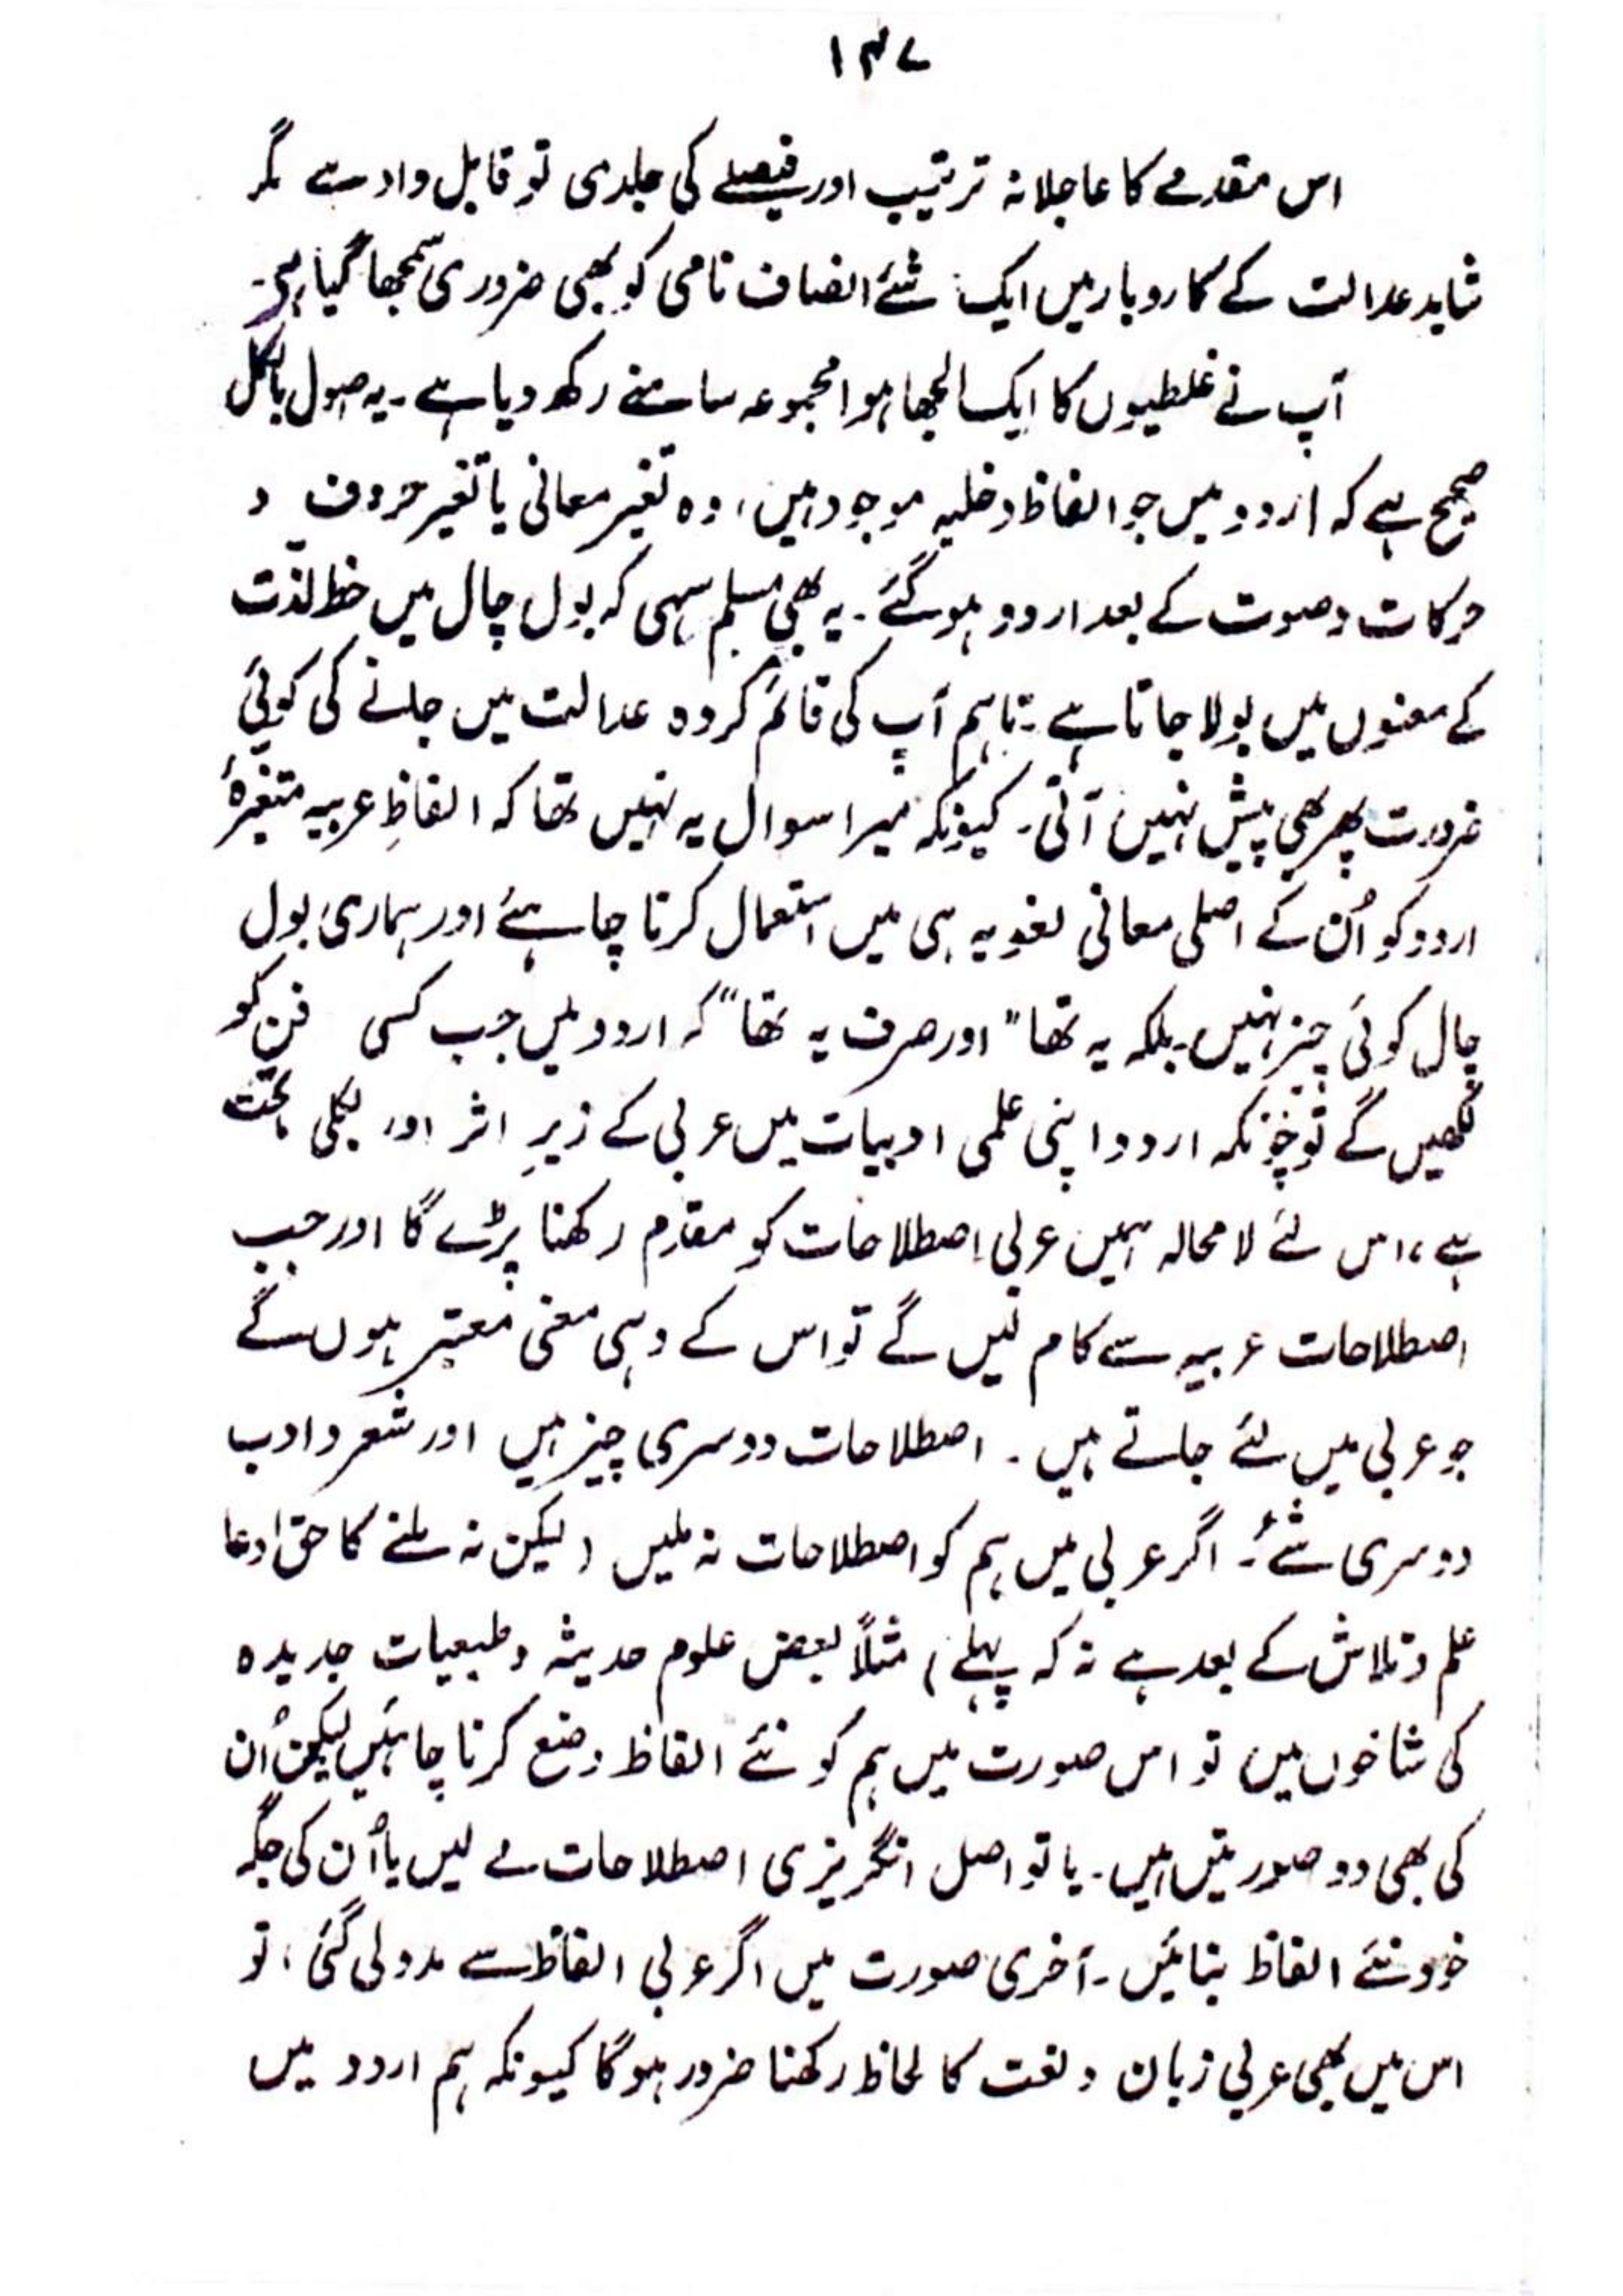 ۱۴۷
اس مقدمے کا عاجلانہ ترتیب اور فیصلے کی جلدی تو قابل داد ہے مگر
شاید عدالت کے کاروبار میں ایک شئے انصاف نامی کو بھی ضروری سمجھا گیا ہے۔
آپ نے غلطیوں کا ایک الجھا ہوا مجموعہ سامنے رکھ دیا ہے۔ یہ اصول بالکل
صحیح ہے کہ اردو میں جو الفاظ دخلیہ موجود ہیں، وہ تغیر معانی یا تغیر حروف و
حرکات و صوت کے بعد اردو ہو گئے۔ یہ بھی مسلم سہی کہ بول چال میں حظ لذت
کے معنوں میں بولا جاتا ہے۔ تاہم آپ کی قائم کردہ عدالت میں جانے کی کوئی
ضرورت پھر بھی پیش نہیں آتی۔ کیونکہ میرا سوال یہ نہیں تھا کہ الفاظِ عربیہ متغیرۂ
اردو کو اُن کے اصلی معانی لغویہ ہی میں استعمال کرنا چاہئے اور ہماری بول
چال کوئی چیز نہیں۔ بلکہ یہ تھا "اور صرف یہ تھا" کہ اردو میں جب کسی فن کو
لکھیں گے تو چونکہ اردو اپنی علمی ادبیات میں عربی کے زیرِ اثر اور بکلی ماتحت
ہے، اس لئے لا محالہ ہمیں عربی اصطلاحات کو مقدم رکھنا پڑے گا اور جب
اصطلاحات عربیہ سے کام لیں گے تو اس کے وہی معنی معتبر ہوں گے
جو عربی میں لئے جاتے ہیں۔ اصطلاحات دوسری چیز ہیں اور شعر و ادب
دوسری شئے۔ اگر عربی میں ہم کو اصطلاحات نہ ملیں (لیکن نہ ملنے کا حق ادعا
علم و تلاش کے بعد ہے نہ کہ پہلے) مثلاً بعض علوم حدیثہ و طبعیات جدیدہ
کی شاخوں میں تو اس صورت میں ہم کو نئے الفاظ وضع کرنا چاہئیں لیکن اُن
کی بھی دو صورتیں ہیں۔ یا تو اصل انگریزی اصطلاحات لے لیں یا اُن کی جگہ
خود نئے الفاظ بنائیں۔ آخری صورت میں اگر عربی الفاظ سے مدد لی گئی، تو
اس میں بھی عربی زبان و لغت کا لحاظ رکھنا ضرور ہو گا کیونکہ ہم اردو میں